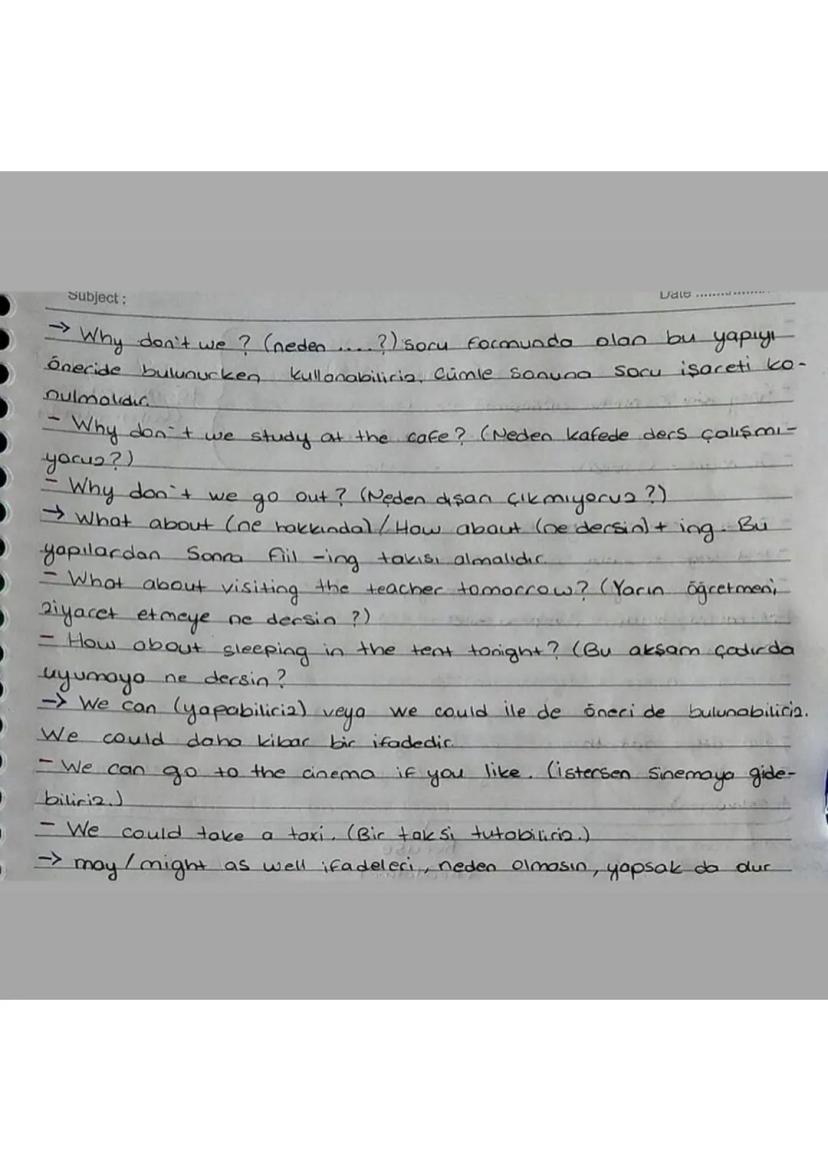 Subject :
Date ..................
→ Why don't we ? (neden ....?) soru formunda olan bu yapıyı
öneride bulunurken kullanabiliriz. Cümle sonuna soru işareti ko-
nulmalıdır.
- Why don't we study at the cafe? (Neden kafede ders çalışmı-
yoruz?)
- Why don't we go out? (Neden dışarı çıkmıyoruz?)
→ What about (ne hakkında) / How about (ne dersin) + ing. Bu
yapılardan sonra fiil -ing takısı almalıdır.
- What about visiting the teacher tomorrow? (Yarın öğretmeni
ziyaret etmeye ne dersin ?)
- How about sleeping in the tent tonight? (Bu akşam çadırda
uyumaya ne dersin?
→ We can (yapabiliriz) veya we could ile de öneri de bulunabiliriz.
We could daha kibar bir ifadedir.
- We can go to the cinema if you like. (istersen sinemaya gide-
biliriz.)
- We could take a taxi. (Bir taksi tutabiliriz.)
→ may/might as well ifadeleri, neden olmasın, yapsak da dur